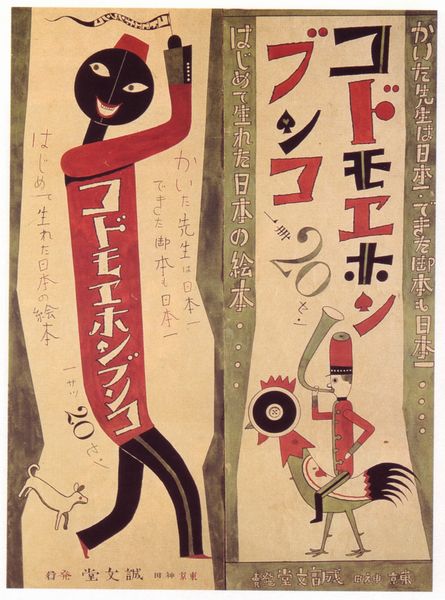 かいた先生は日本一・できた御本も日本一・・・・
コドモヱホン
ブンコ
一冊20セン
はじめて生れた日本の絵本・・・・・
東京 神田 誠文堂發賣
かいた先生は日本一
できた御本も日本一
コドモヱホンブンコ
一サツ 20セン
はじめて生れた日本の絵本
東京 神田 誠文堂 發行